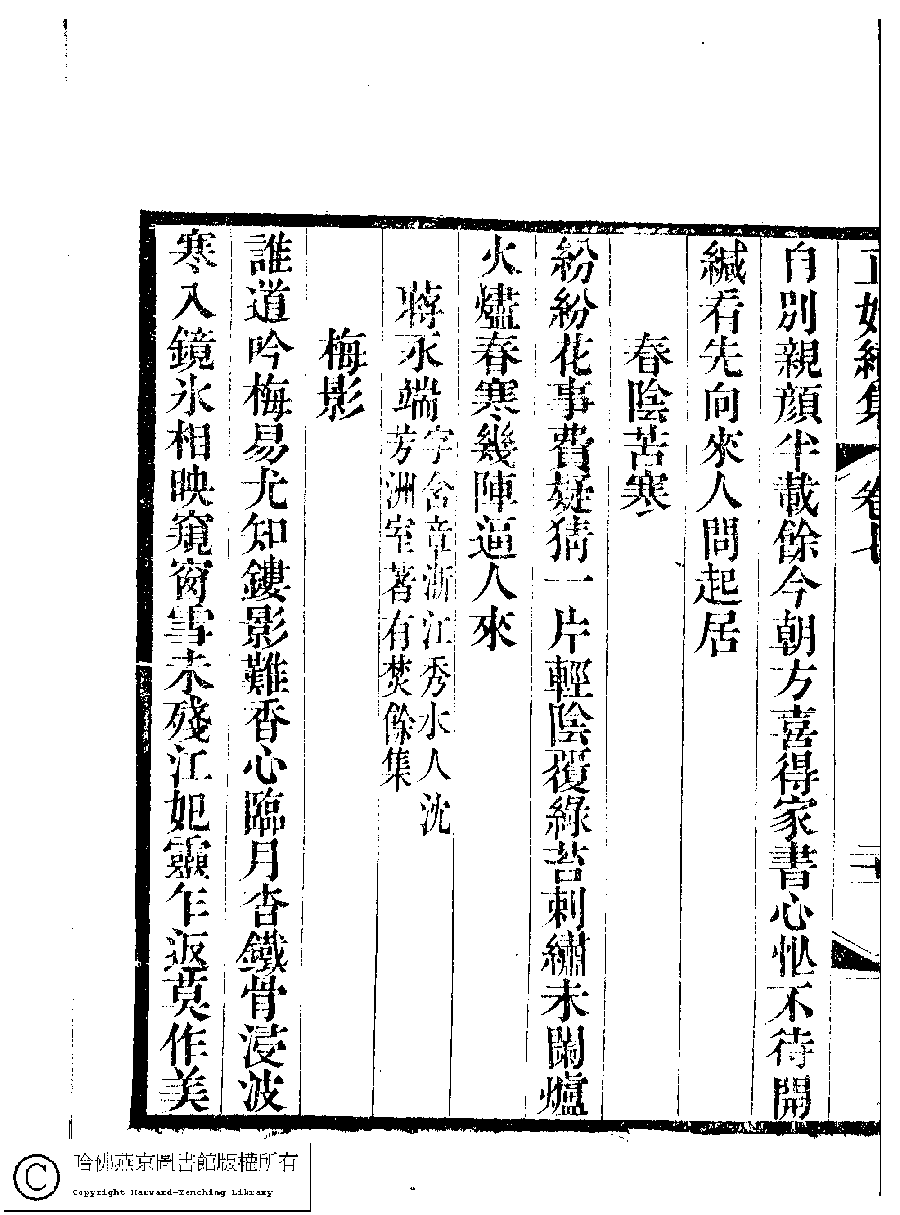 正始續集 卷七 二十
自別親顏半載餘今朝方喜得家書心忙不待開
緘看先向來人問起居
春陰苦寒
紛紛花事費疑猜一片輕陰覆綠苔刺繡未闌爐
火燼春寒幾陣逼人來
蔣永端字含章浙江秀水人沈
芳洲室著有焚餘集
梅影
誰道吟梅易尤知鏤影難香心臨月杳鐵骨浸波
寒入鏡氷相映窺窗雪未殘江妃靈乍返莫作美
哈佛燕京圖書館版權所有
Copyright Harvard-Yenching Library